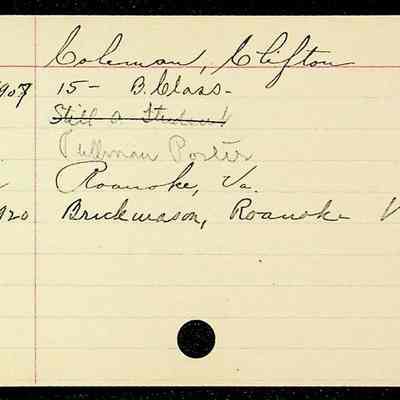 Coleman, Clifton
1907 15- B. Class-
Still a Student
Pullman Porter
Roanoke, Va.
920 Brickmason, Roanoke V